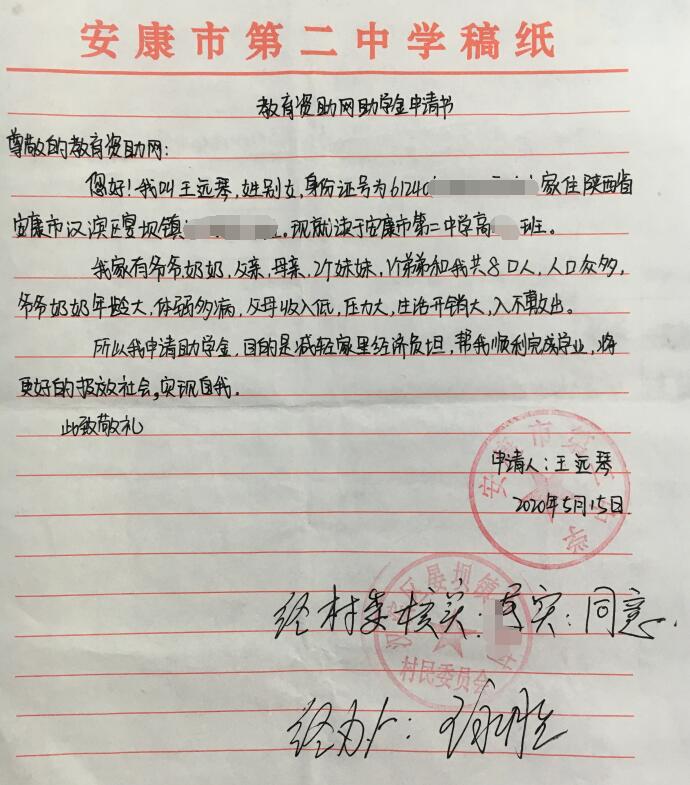 安康市第二中学稿纸
教育资助网助学金申请书
尊敬的教育资助网:
您好!我叫王远琴,姓别女,身份证号为61240 家住陕西省
安康市汉滨区晏坝镇 ,现就读于安康市第二中学高 班。
我家有爷爷,奶奶,父亲,母亲,2个妹妹,1个弟弟和我共8口人,人口众多,
爷爷奶奶年龄大,体弱多病,父母收入低,压力大,生活开销大,入不敷出。
所以我申请助学金,目的是减轻家里经济负担,帮我顺利完成学业,将
更好的报效社会,实现自我.
此致敬礼
申请人:王远琴
2020年5月15日
安康市第二中学
经村委核实: 实:同意.
区晏坝镇
村民委员会
经办人: